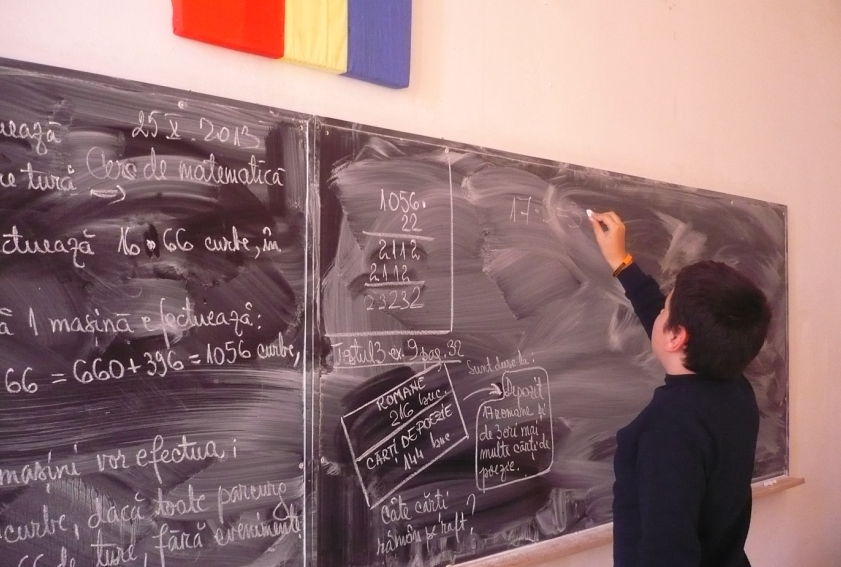 25 X 2013
Cerc de matematică
tură
16 · 66 curbe, în
1 mașină efectuează:
66 = 660 + 396 = 1056 curbe,
mașini vor efectua
curbe, dacă toate parcurg
ture, fără evenimente
1056 ·
22
2112
2112
23232
Testul 3 ex. 9 pag. 32
ROMANE
216 buc.
CĂRȚI DE POEZIE
144 buc
Sunt duse la:
Depozit
17 romane și
de 3 ori mai
multe cărți de
poezie.
Câte cărți
rămân pe raft?
17